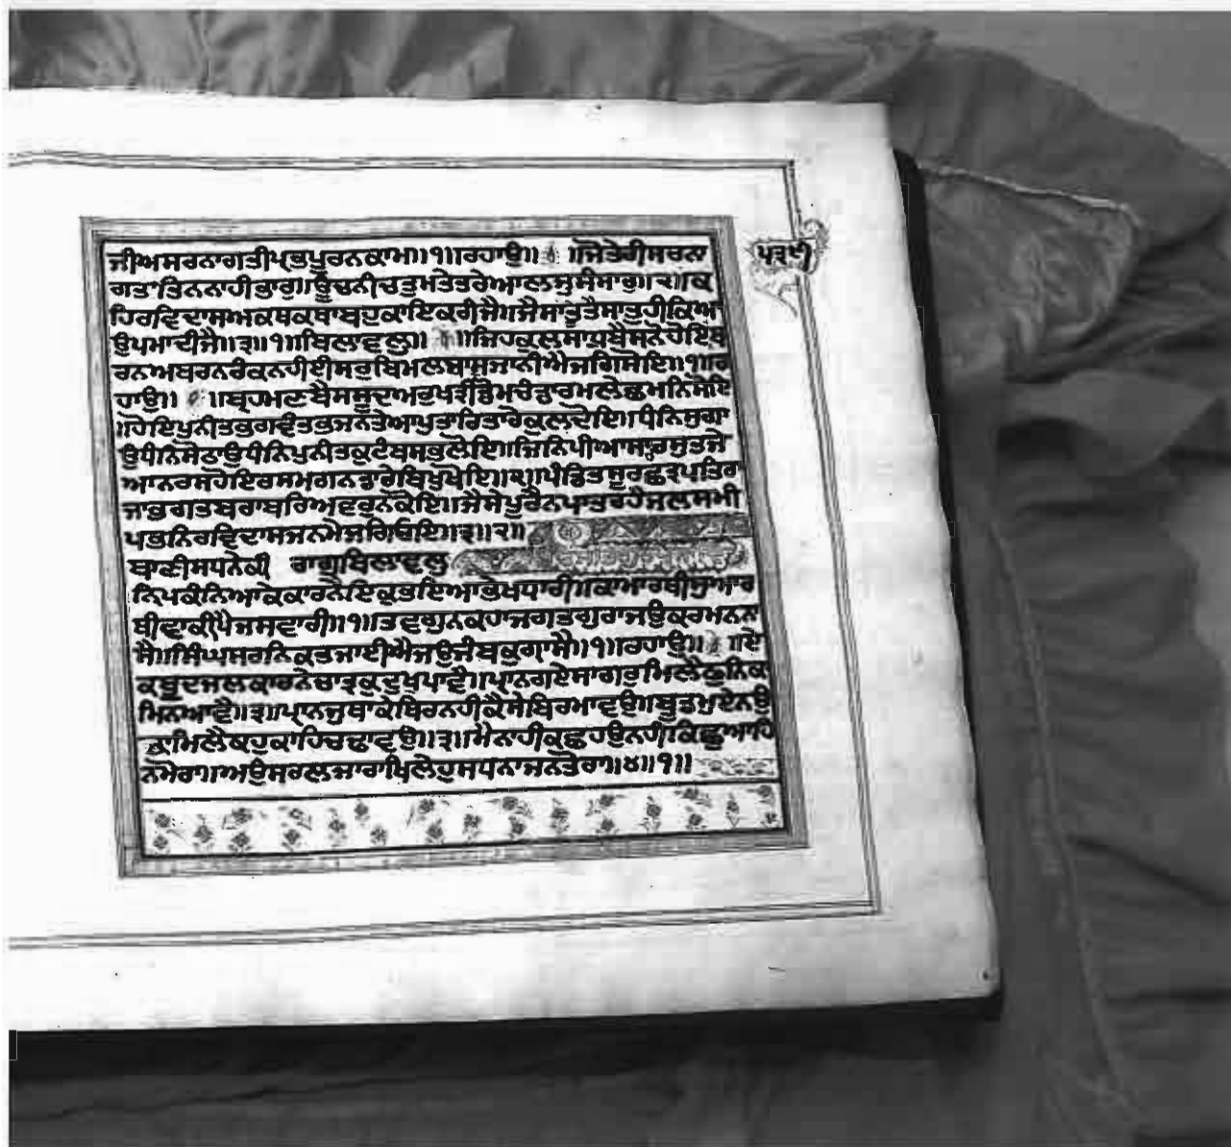 ਜੀਅਸਰਨਾਗਤੀਪ੍ਰਭਪੂਰਨਕਾਮ॥੧॥ਰਹਾਉ॥ ॥ਜੋਤੇਰੀਸਰਨਾ
ਗਤਾਤਿਨਨਾਹੀਭਾਰੁ॥ਊਚਨੀਚਤੁਮਤੇਤਰੇਆਲਜੁਸੰਸਾਰੁ॥੨॥ਕ
ਹਿਰਵਿਦਾਸਅਕਥਕਥਾਬਹੁਕਾਇਕਰੀਜੈ॥ਜੈਸਾਤੂਤੈਸਾਤੁਹੀਕਿਆ
ਉਪਮਾਦੀਜੈ॥੩॥੧॥ਬਿਲਾਵਲੁ॥ ॥ਜਿਹਕੁਲਸਾਧਬੈਸਨੋਹੋਇਬ
ਰਨਅਬਰਨਰੰਕਨਹੀਈਸਰੁਬਿਮਲਬਾਸੁਜਾਨੀਐਜਗਿਸੋਇ॥੧॥ਰ
ਹਾਉ॥ ॥ਬ੍ਰਹਮਣਬੈਸਸੂਦਅਰੁਖ੍ਯਤ੍ਰੀਡੋਮਚੰਡਾਰਮਲੇਛਮਨਿਸੋਇ
॥ਹੋਇਪੁਨੀਤਭਗਵੰਤਭਜਨਤੇਆਪੁਤਾਰਿਤਾਰੇਕੁਲਦੋਇ॥ਧੰਨਿਸੁਗਾ
ਉਧੰਨਿਸੋਠਾਉਧੰਨਿਪੁਨੀਤਕੁਟੰਬਸਭਲੋਇ॥ਜਿਨਿਪੀਆਸਾਰਸੁਤਜੇ
ਆਨਰਸਹੋਇਰਸਮਗਨਡਾਰੇਬਿਖੁਖੋਇ॥੨॥ਪੰਡਿਤਸੂਰਛਤ੍ਰਪਤਿਰਾ
ਜਾਭਗਤਬਰਾਬਰਿਅਵਰੁਨਕੋਇ॥ਜੈਸੇਪੁਰੈਨਪਾਤਰਹੈਜਲਸਮੀ
ਪਭਨਿਰਵਿਦਾਸਜਨਮੇਜਗਿਓਇ॥੩॥੨॥
ਬਾਣੀਸਧਨੇਕੀ ਰਾਗੁਬਿਲਾਵਲੁ
ਨ੍ਰਿਪਕੰਨਿਆਕੇਕਾਰਨੈਇਕੁਭਇਆਭੇਖਧਾਰੀ॥ਕਾਮਾਰਥੀਸੁਆਰ
ਥੀਵਾਕੀਪੈਜਸਵਾਰੀ॥੧॥ਤਵਗੁਨਕਹਾਜਗਤਗੁਰਾਜਉਕਰਮੁਨਨਾ
ਸੈ॥ਸਿੰਘਸਰਨਿਕਤਜਾਈਐਜਉਜੰਬੁਕੁਗ੍ਰਾਸੈ॥੧॥ਰਹਾਉ॥ ॥ਏ
ਕਬੂੰਦਜਲਕਾਰਨੇਚਾਤ੍ਰਕੁਦੁਖੁਪਾਵੈ॥ਪ੍ਰਾਨਗਏਸਾਗਰੁਮਿਲੈਫੁਨਿਕਾ
ਮਿਨਆਵੈ॥੨॥ਪ੍ਰਾਨਜੁਥਾਕੇਥਿਰਨਹੀਕੈਸੇਬਿਰਮਾਵਉ॥ਬੂਡਿਮੂਏਨਉ
ਕਾਮਿਲੈਕਹੁਕਾਹਿਚਢਾਵਉ॥੩॥ਮੈਨਾਹੀਕਛੁਹਉਨਹੀਕਿਛੁਆਹਿ
ਨਮੋਰਾ॥ਅਉਸਰਲਜਾਰਾਖਿਲੇਹੁਸਧਨਾਜਨਤੋਰਾ॥੪॥੧॥